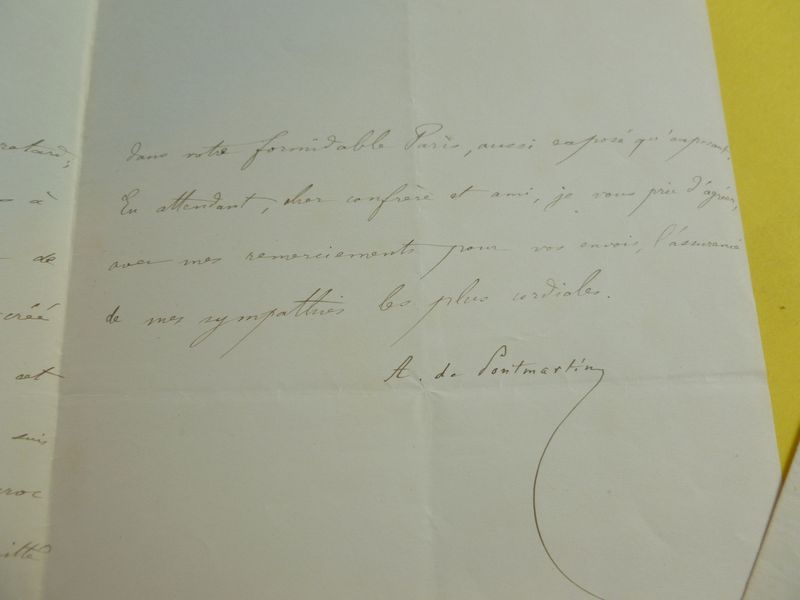 retard,
dans votre formidable Paris, aussi exposé qu'imposant.
à
En attendant, cher confrère et ami, je vous prie d'agréer,
de
avec mes remerciements pour vos envois, l'assurance
créé
de mes sympathies les plus cordiales.
cet
A. de Pontmartin
suis